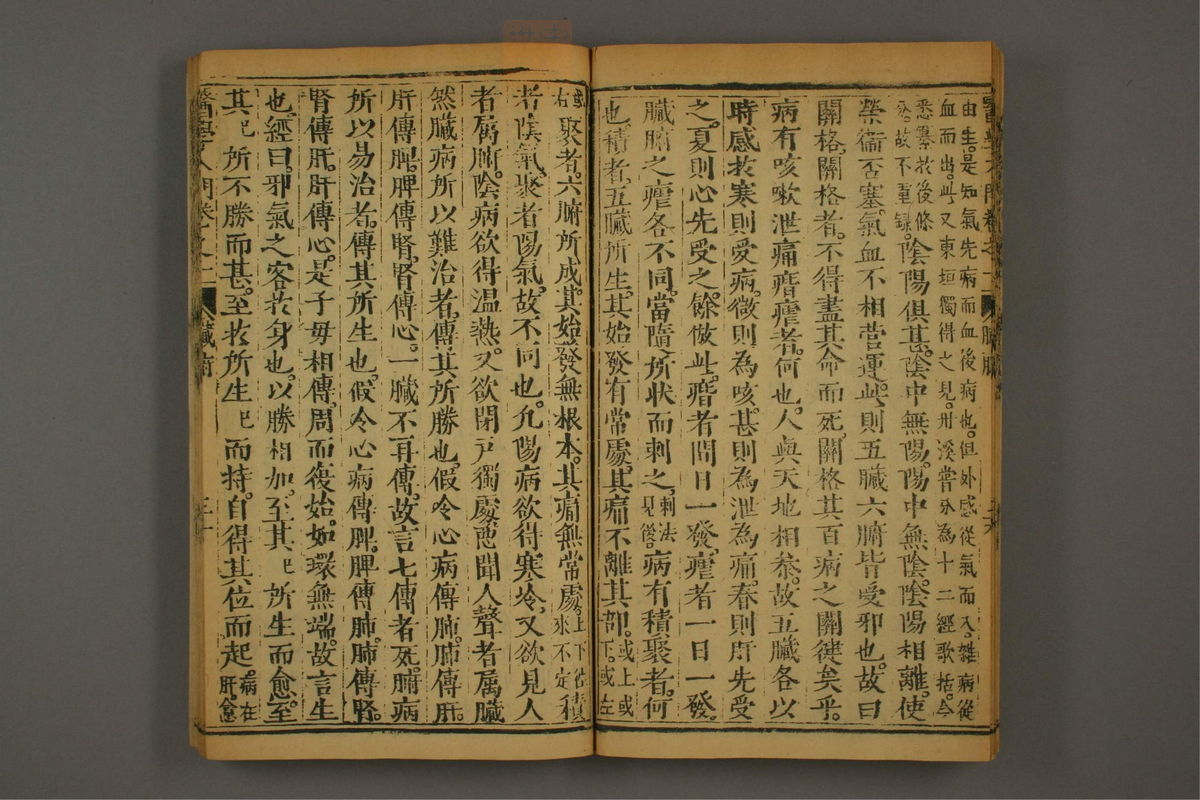 由生是知氣先病而血後病也但外感從氣而入雜病從
血而出此又東垣獨得之見丹溪嘗分為十二經歌括今
悉纂於後條
分故不重録陰陽俱甚陰中無陽陽中無陰陰陽相離使
榮衞否塞氣血不相營運此則五臟六腑皆受邪也故曰
關格關格者不得盡其命而死關格其百病之關揵矣乎
病有咳嗽泄痛痟瘧者何也人與天地相叅故五臟各以
時感於寒則受病微則為咳甚則為泄為痛春則肝先受
之夏則心先受之餘倣此痟者間日一發瘧者一日一發
臟腑之瘧各不同當隨所状而刺之刺法見後病有積聚者何
也積者五臟所生其始發有常處其痛不離其部或上或下或左
或右聚者六腑所成其始發無根本其痛無常處上下
來不定積
者陰氣聚者陽氣故不同也凢陽病欲得寒冷又欲見人
者屬腑陰病欲得温熱又欲閉户獨處悪聞人聲者属臟
然臟病所以難治者傳其所勝也假令心病傳肺肺傳肝
肝傳脾脾傳腎腎傳心一臟不再傳故言七傳者死腑病
所以易治者傳其所生也假令心病傳脾脾傳肺肺傳腎
腎傳肝肝傳心是子母相傳周而復始如環無端故言生
也經曰邪氣之客於身也以勝相加至其己所生而愈至
其己所不勝而甚至於所生己而持自得其位而起病在肝愈
醫學入門卷之一 臟腑